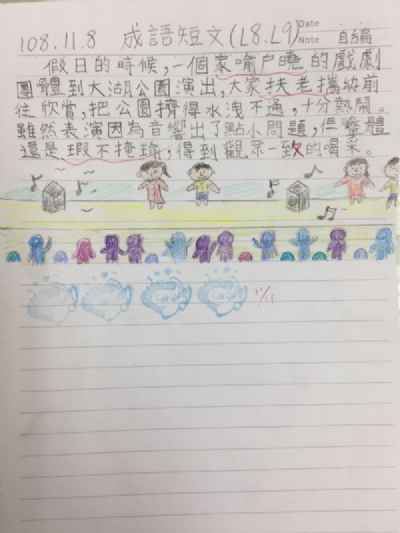 108.11.8 成語短文(L8.L9) Date
Note 自編
假日的時候,一個家喻戶曉的戲劇
團體到大湖公園演出,大家扶老攜幼前
往欣賞,把公園擠得水洩不通,十分熱鬧。
雖然表演因為音響出了點小問題,但整體
還是瑕不掩瑜,得到觀眾一致的喝采。
11/11